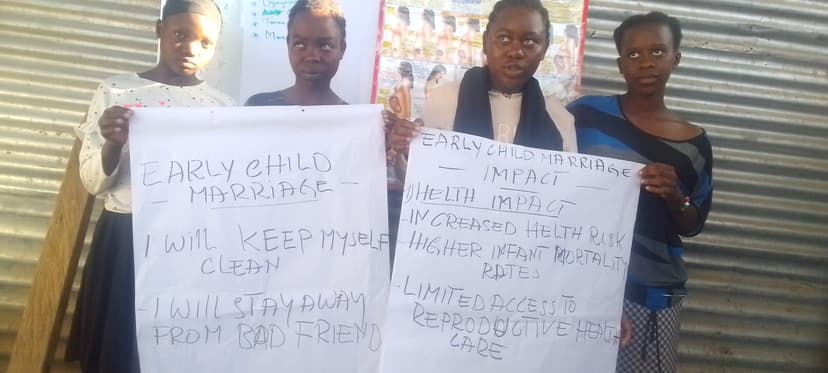 EARLY CHILD
- MARRIAGE -
I WILL KEEP MYSELF
CLEAN
- I WILL STAY AWAY
FROM BAD FRIEND
EARLY CHILD MARRIAGE
- IMPACT -
1) HELTH IMPACT
- INCREASED HELTH RISK
- HIGHER INFANT MORTALITY
RATES
- LIMITED ACCESS TO
REPRODUCTIVE HEALTH
CARE